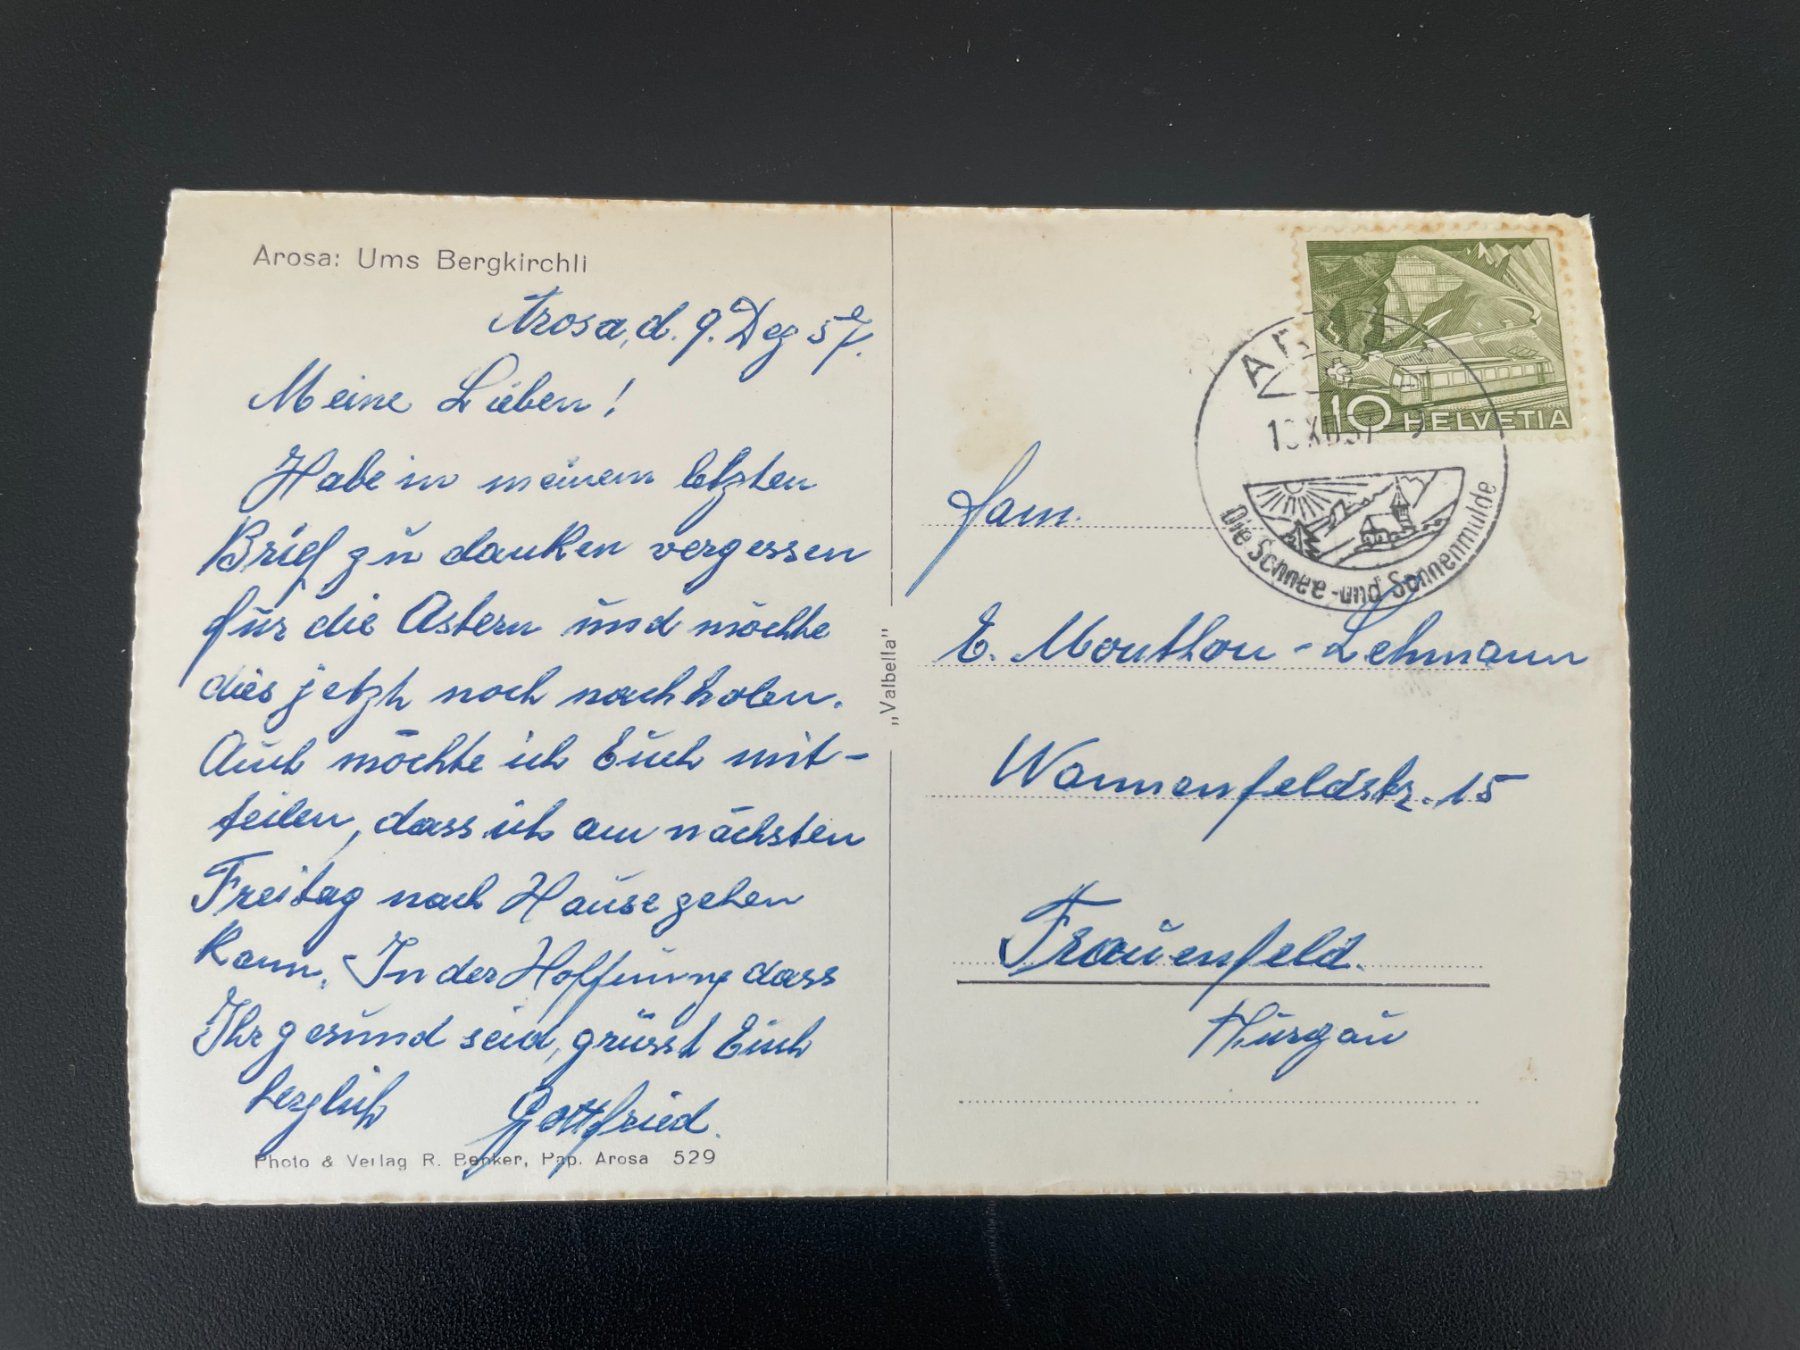 Arosa: Ums Bergkirchli
Arosa, d. 9. Dez 57.
Meine Lieben!
Habe in meinem letzten
Brief zu danken vergessen
für die Astern und möchte
dies jetzt noch nachholen.
Auch möchte ich Euch mit-
teilen, dass ich am nächsten
Freitag nach Hause gehen
kann. In der Hoffnung dass
Ihr gesund seid, grüsst Euch
herzlich Gottfried.
Photo & Verlag R. Benker, Pap. Arosa 529
„Valbella"
10 HELVETIA
XII 57
Die Schnee- und Sonnenmulde
Fam.
E. Mouthon-Lehmann
Wannenfeldstr. 15
Frauenfeld.
Thurgau